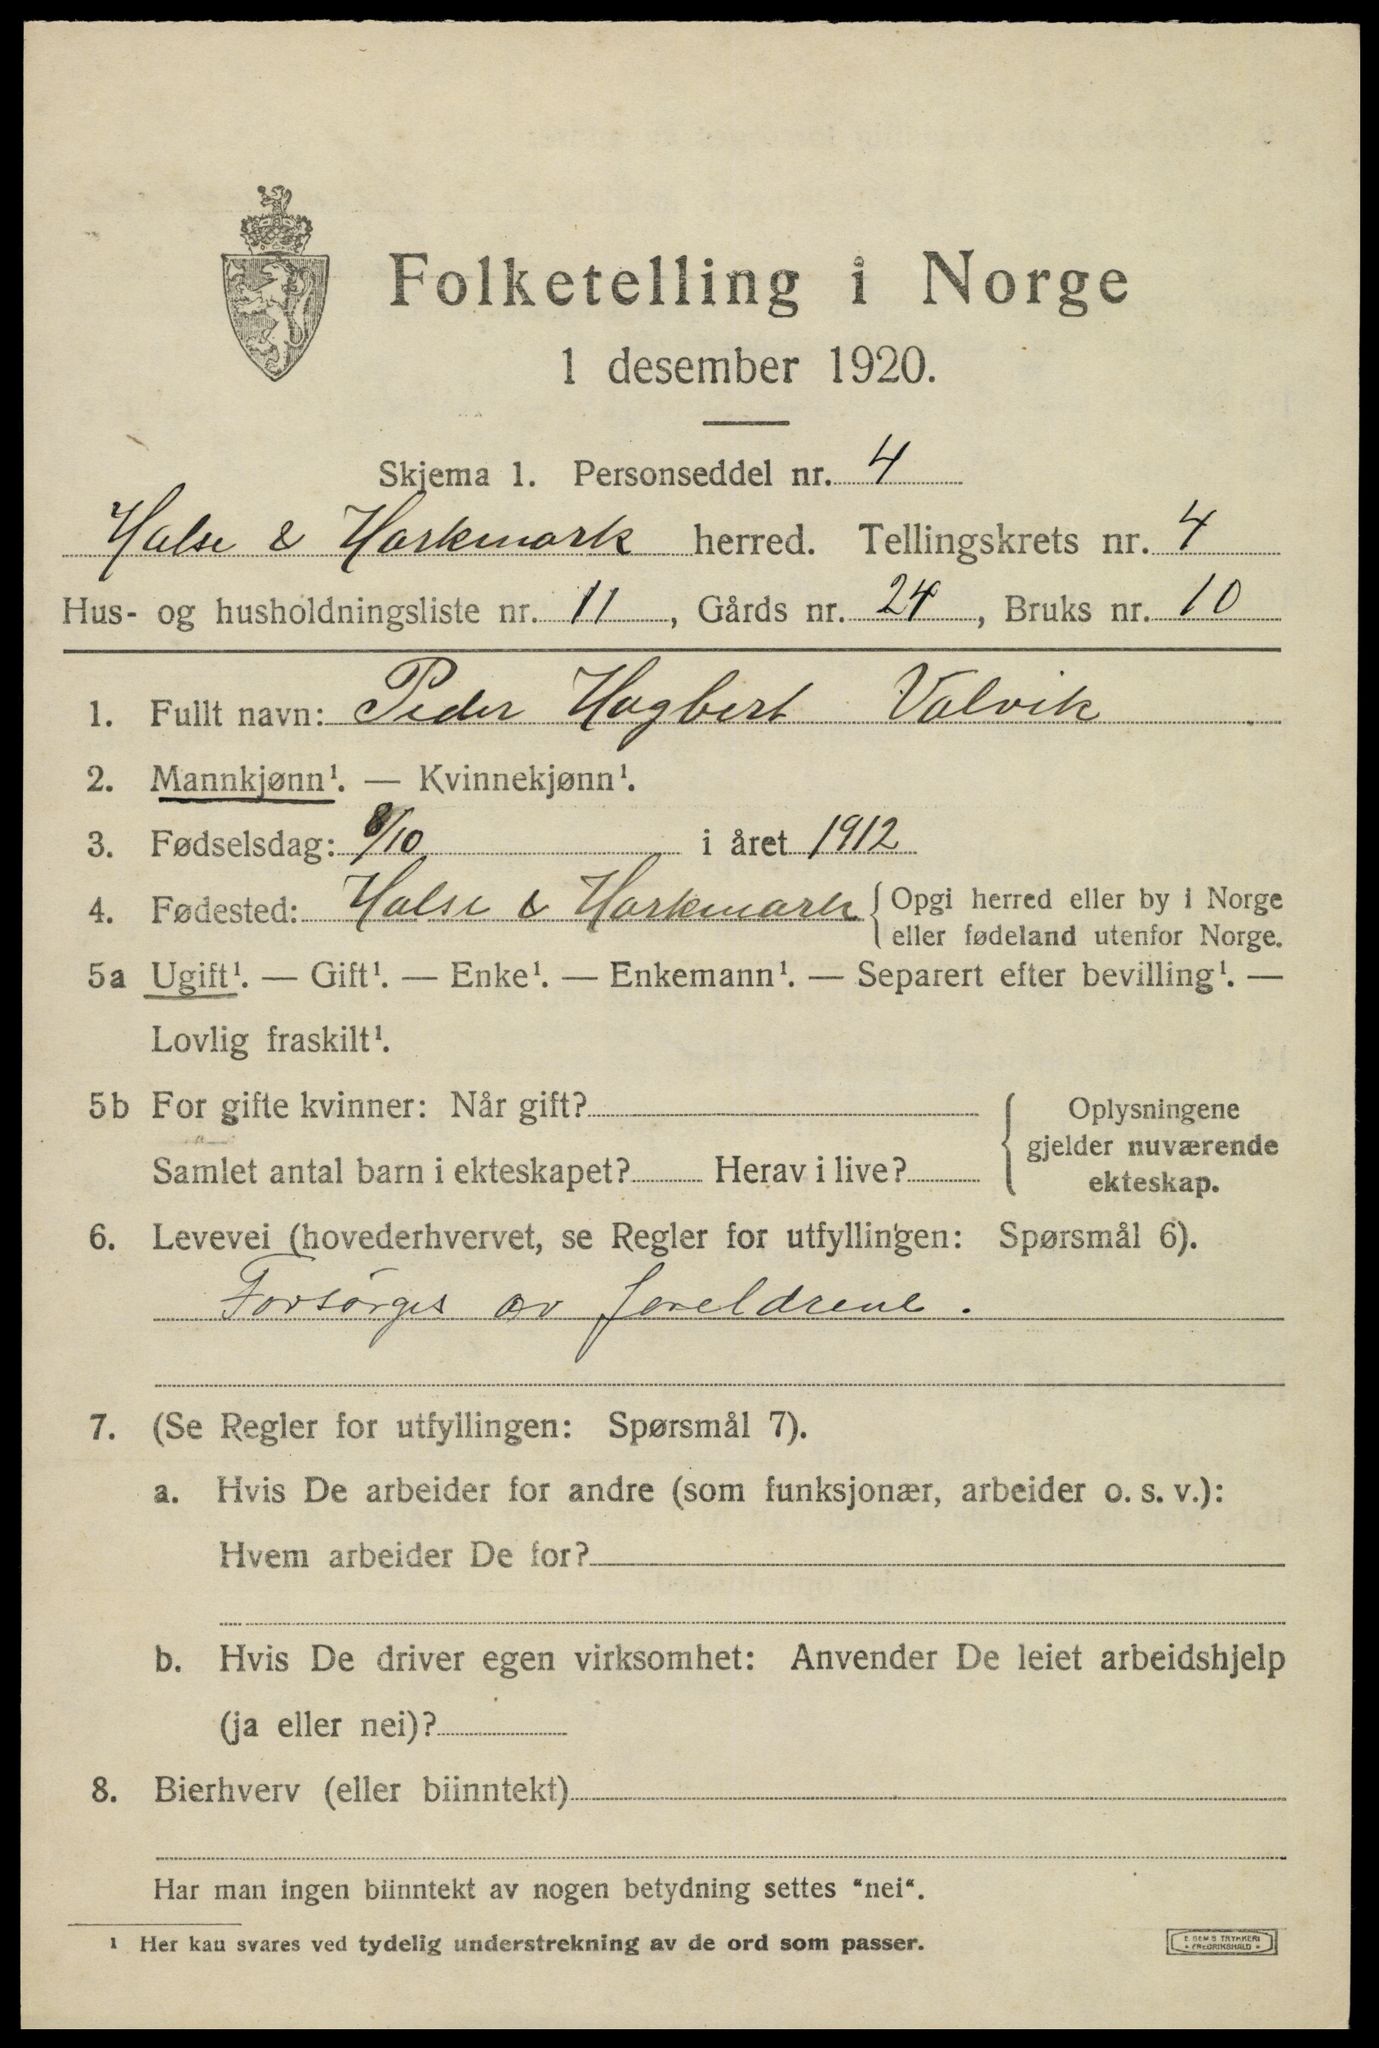 Folketelling i Norge
1 desember 1920.
Skjema 1. Personseddel nr. 4
Halse & Harkmark herred. Tellingskrets nr. 4
Hus- og husholdningsliste nr. 11, Gårds nr. 24, Bruks nr. 10
1. Fullt navn: Peder Hagbert Valvik
2. Mannkjønn¹. — Kvinnekjønn¹.
3. Fødselsdag: 8/10 i året 1912
4. Fødested: Halse & Harkmark { Opgi herred eller by i Norge
eller fødeland utenfor Norge.
5a Ugift¹. — Gift¹. — Enke¹. — Enkemann¹. — Separert efter bevilling¹. —
Lovlig fraskilt¹.
5b For gifte kvinner: Når gift?
Samlet antal barn i ekteskapet? Herav i live?
{ Oplysningene
gjelder nuværende
ekteskap.
6. Levevei (hovederhvervet, se Regler for utfyllingen: Spørsmål 6).
Forsørges av foreldrene.
7. (Se Regler for utfyllingen: Spørsmål 7).
a. Hvis De arbeider for andre (som funksjonær, arbeider o. s. v.):
Hvem arbeider De for?
b. Hvis De driver egen virksomhet: Anvender De leiet arbeidshjelp
(ja eller nei)?
8. Bierhverv (eller biinntekt)
Har man ingen biinntekt av nogen betydning settes "nei".
¹ Her kan svares ved tydelig understrekning av de ord som passer.
E. SEM'S TRYKKERI
FREDRIKSHALD